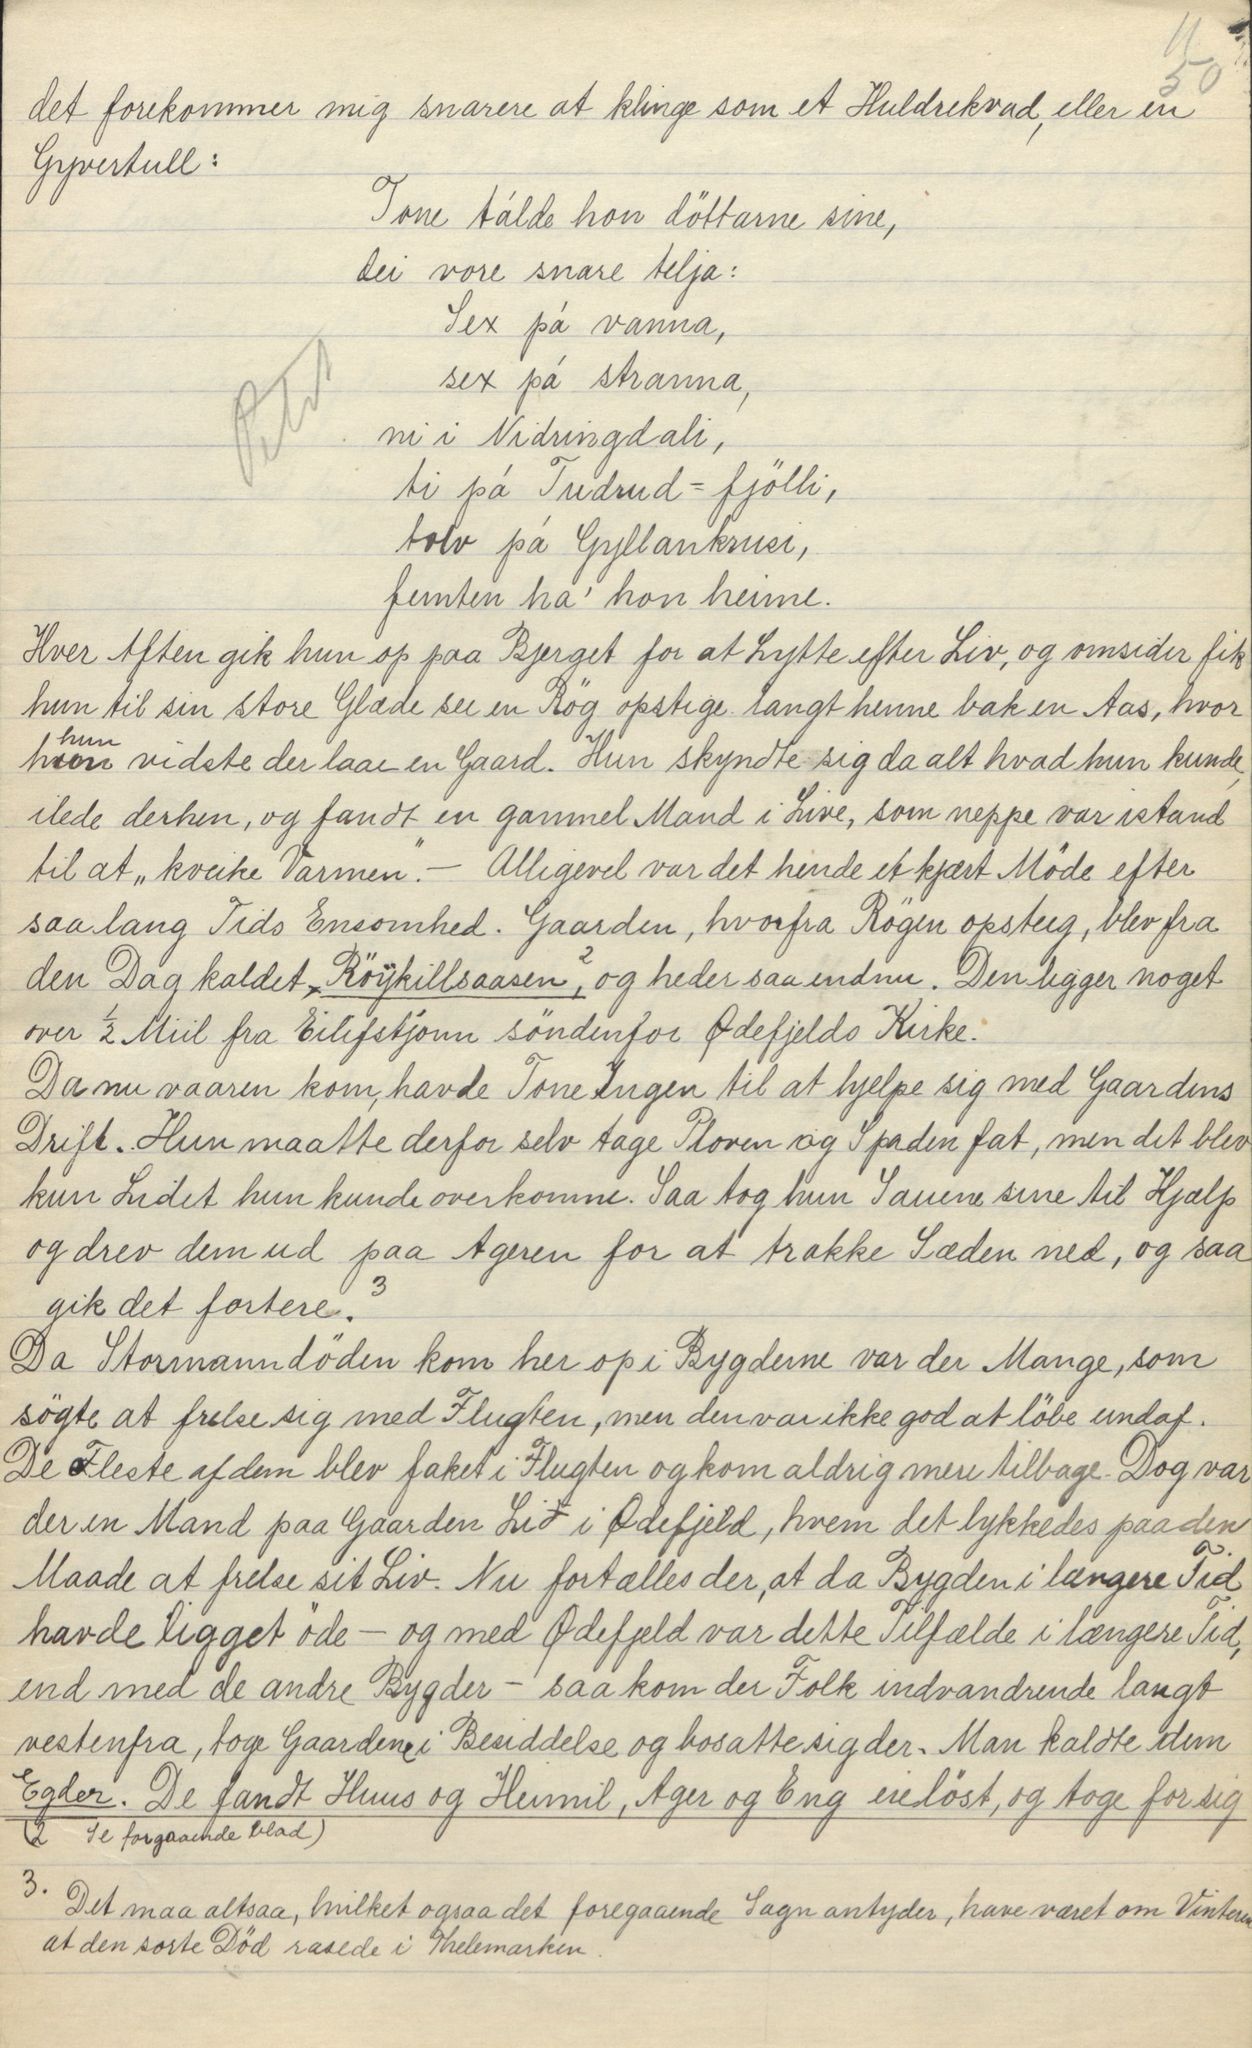 11
50
det forekommer mig snarere at klinge som et Huldrekvad, eller en
Gyvertull:
Tone tálde hon döttarne sine,
dei vore snare telja:
Sex pá vanna,
sex pá stranna,
ni i Nidringdali,
ti pá Tudrud=fjölli,
tolv pá Gyllankrusi,
femten ha' hon heime.
Hver Aften gik hun op paa Bjerget for at Lytte efter Liv, og omsider fik
hun til sin store Glæde see en Rög opstige langt henne bak en Aas, hvor
hun
vidste der laae en Gaard. Hun skyndte sig da alt hvad hun kunde,
ilede derhen, og fandt en gammel Mand i Live, som neppe var istand
til at „kveike Varmen". — Alligevel var det hende et kjært Möde efter
saa lang Tids Ensomhed. Gaarden, hvorfra Rögen opsteig, blev fra
den Dag kaldet, Röÿkillsaasen,2 og heder saa endnu. Den ligger noget
over ½ Miil fra Eilifstjonn söndenfor Ødefjelds Kirke.
Da nu vaaren kom, havde Tone Ingen til at hjelpe sig med Gaardens
Drift. Hun maatte derfor selv tage Ploven og Spaden fat, men det blev
kun Lidet hun kunde overkomme. Saa tog hun Sauene sine til Hjælp
og drev dem ud paa Ageren for at trakke Sæden ned, og saa
gik det fortere.3
Da Stormanndöden kom her op i Bygderne var der Mange, som
sögte at frelse sig med Flugten, men den var ikke god at löbe undaf.
De Fleste af dem blev faket i Flugten og kom aldrig mere tilbage. Dog var
der en Mand paa Gaarden Lid i Ødefjeld, hvem det lykkedes paa den
Maade at frelse sit Liv. Nu fortælles der, at da Bygden i længere Tid
havde ligget öde — og med Ødefjeld var dette Tilfælde i længere Tid,
end med de andre Bygder — saa kom der Folk indvandrende langt
vestenfra, toge Gaardene i Besiddelse og bosatte sig der. Man kaldte dem
Egder. De fandt Huus og Heimil, Ager og Eng eieløst, og toge for sig
(2 Se forgaaende blad)
3. Det maa altsaa, hvilket ogsaa det foregaaende Sagn antyder, have været om Vinteren
at den sorte Död rasede i Thelemarken.